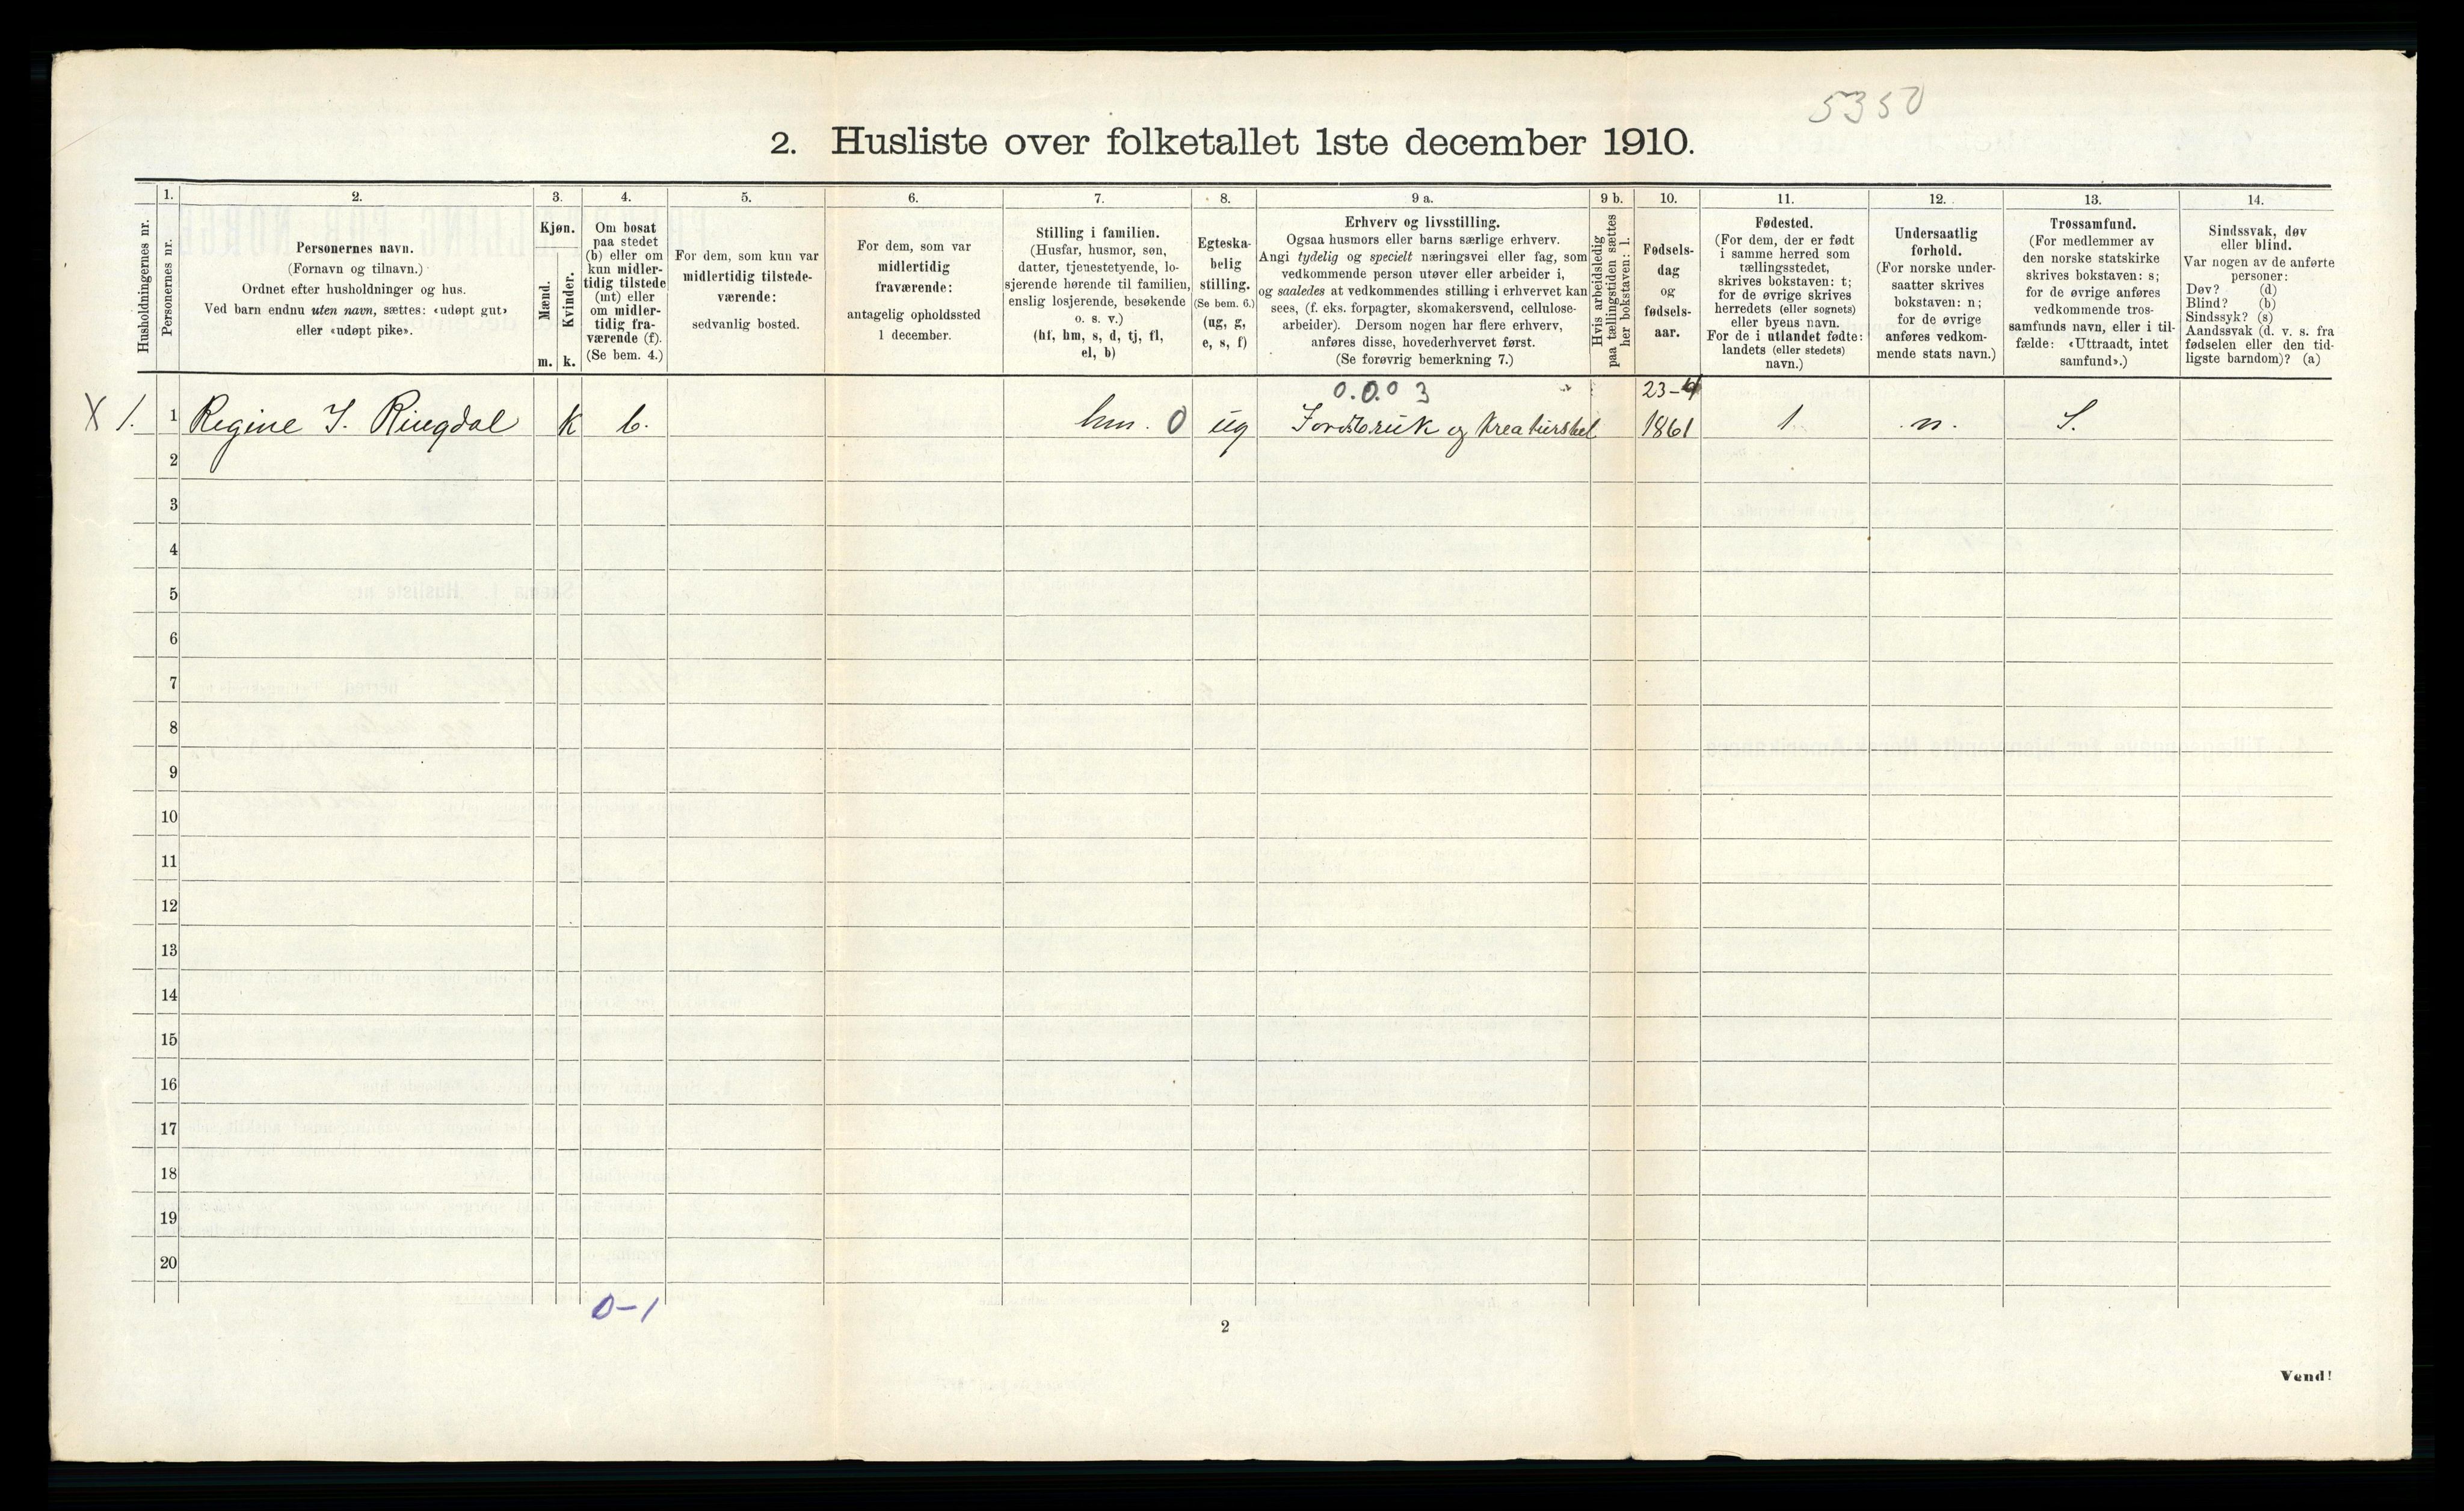 5350
2. Husliste over folketallet 1ste december 1910.
Husholdningernes nr.
1.
Personernes nr.
2.
Personernes navn.
(Fornavn og tilnavn.)
Ordnet efter husholdninger og hus.
Ved barn endnu uten navn, sættes: «udøpt gut»
eller «udøpt pike».
3.
Kjøn.
Mænd.
Kvinder.
m. k.
4.
Om bosat
paa stedet
(b) eller om
kun midler-
tidig tilstede
(mt) eller
om midler-
tidig fra-
værende (f).
(Se bem. 4.)
5.
For dem, som kun var
midlertidig tilstede-
værende:
sedvanlig bosted.
6.
For dem, som var
midlertidig
fraværende:
antagelig opholdssted
1 december.
7.
Stilling i familien.
(Husfar, husmor, søn,
datter, tjenestetyende, lo-
sjerende hørende til familien,
enslig losjerende, besøkende
o. s. v.)
(hf, hm, s, d, tj, fl,
el, b)
8.
Egteska-
belig
stilling.
(Se bem. 6.)
(ug, g,
e, s, f)
9 a.
Erhverv og livsstilling.
Ogsaa husmors eller barns særlige erhverv.
Angi tydelig og specielt næringsvei eller fag, som
vedkommende person utøver eller arbeider i,
og saaledes at vedkommendes stilling i erhvervet kan
sees, (f. eks. forpagter, skomakersvend, cellulose-
arbeider). Dersom nogen har flere erhverv,
anføres disse, hovederhvervet først.
(Se forøvrig bemerkning 7.)
9 b.
Hvis arbeidsledig
paa tællingstiden sættes
her bokstaven: l.
10.
Fødsels-
dag
og
fødsels-
aar.
11.
Fødested.
(For dem, der er født
i samme herred som
tællingsstedet,
skrives bokstaven: t;
for de øvrige skrives
herredets (eller sognets)
eller byens navn.
For de i utlandet fødte:
landets (eller stedets)
navn.)
12.
Undersaatlig
forhold.
(For norske under-
saatter skrives
bokstaven: n;
for de øvrige
anføres vedkom-
mende stats navn.)
13.
Trossamfund.
(For medlemmer av
den norske statskirke
skrives bokstaven: s;
for de øvrige anføres
vedkommende tros-
samfunds navn, eller i til-
fælde: «Uttraadt, intet
samfund».)
14.
Sindssvak, døv
eller blind.
Var nogen av de anførte
personer:
Døv? (d)
Blind? (b)
Sindssyk? (s)
Aandssvak (d. v. s. fra
fødselen eller den tid-
ligste barndom)? (a)
0.0.0 3 23-4
X 1. 1 Regine J. Ringdal k b. hm. 0 ug Jordbruk og kreaturstel 1861 1 n. S.
2
3
4
5
6
7
8
9
10
11
12
13
14
15
16
17
18
19
20
0-1
2
Vend!